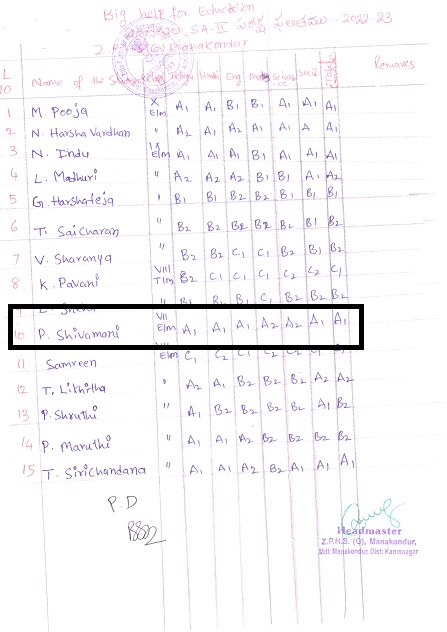 Big help for Education
SA-II పరీక్ష ఫలితములు 2022-23
Z.P.H.S (G) Manakondur
Name of the Student Class Telugu Hindi Eng Maths Science Social Grade Remarks
1 M. Pooja X E/m A1 A1 B1 B1 A1 A1 A1
2 N. Harsha Vardhan " A2 A1 A2 A1 A1 A A1
3 N. Indu IX E/m A1 A1 A1 B1 A1 A1 A1
4 L. Madhuri " A2 A2 A2 B1 B1 A1 A2
5 G. Harshateja " B1 B1 B2 B2 B1 B1 B1
6 T. Saicharan " B2 B2 B2 B2 B2 B1 B2
7 V. Sharanya " B2 B2 C1 C1 B2 B1 B2
8 K. Pavani VIII T/m B2 C1 C1 C1 C2 C2 C1
9 " B1 B2 B1 C1 B2 B2 B2
10 P. Shivamani VII E/m A1 A1 A1 A2 A2 A1 A1
11 Samreen E/m C1 C2 C1
12 T. Likhitha " A2 A1 B2 B2 B2 A2 A2
13 P. Shruthi " A1 B2 B2 B2 B2 A1 B2
14 P. Maruthi " A1 A1 A2 B2 B2 B2 B2
15 T. Sirichandana " A1 A1 A2 B2 A1 A1 A1
P.D
Headmaster
Z.P.H.S. (G), Manakondur,
Mdl: Manakondur, Dist: Karimnagar